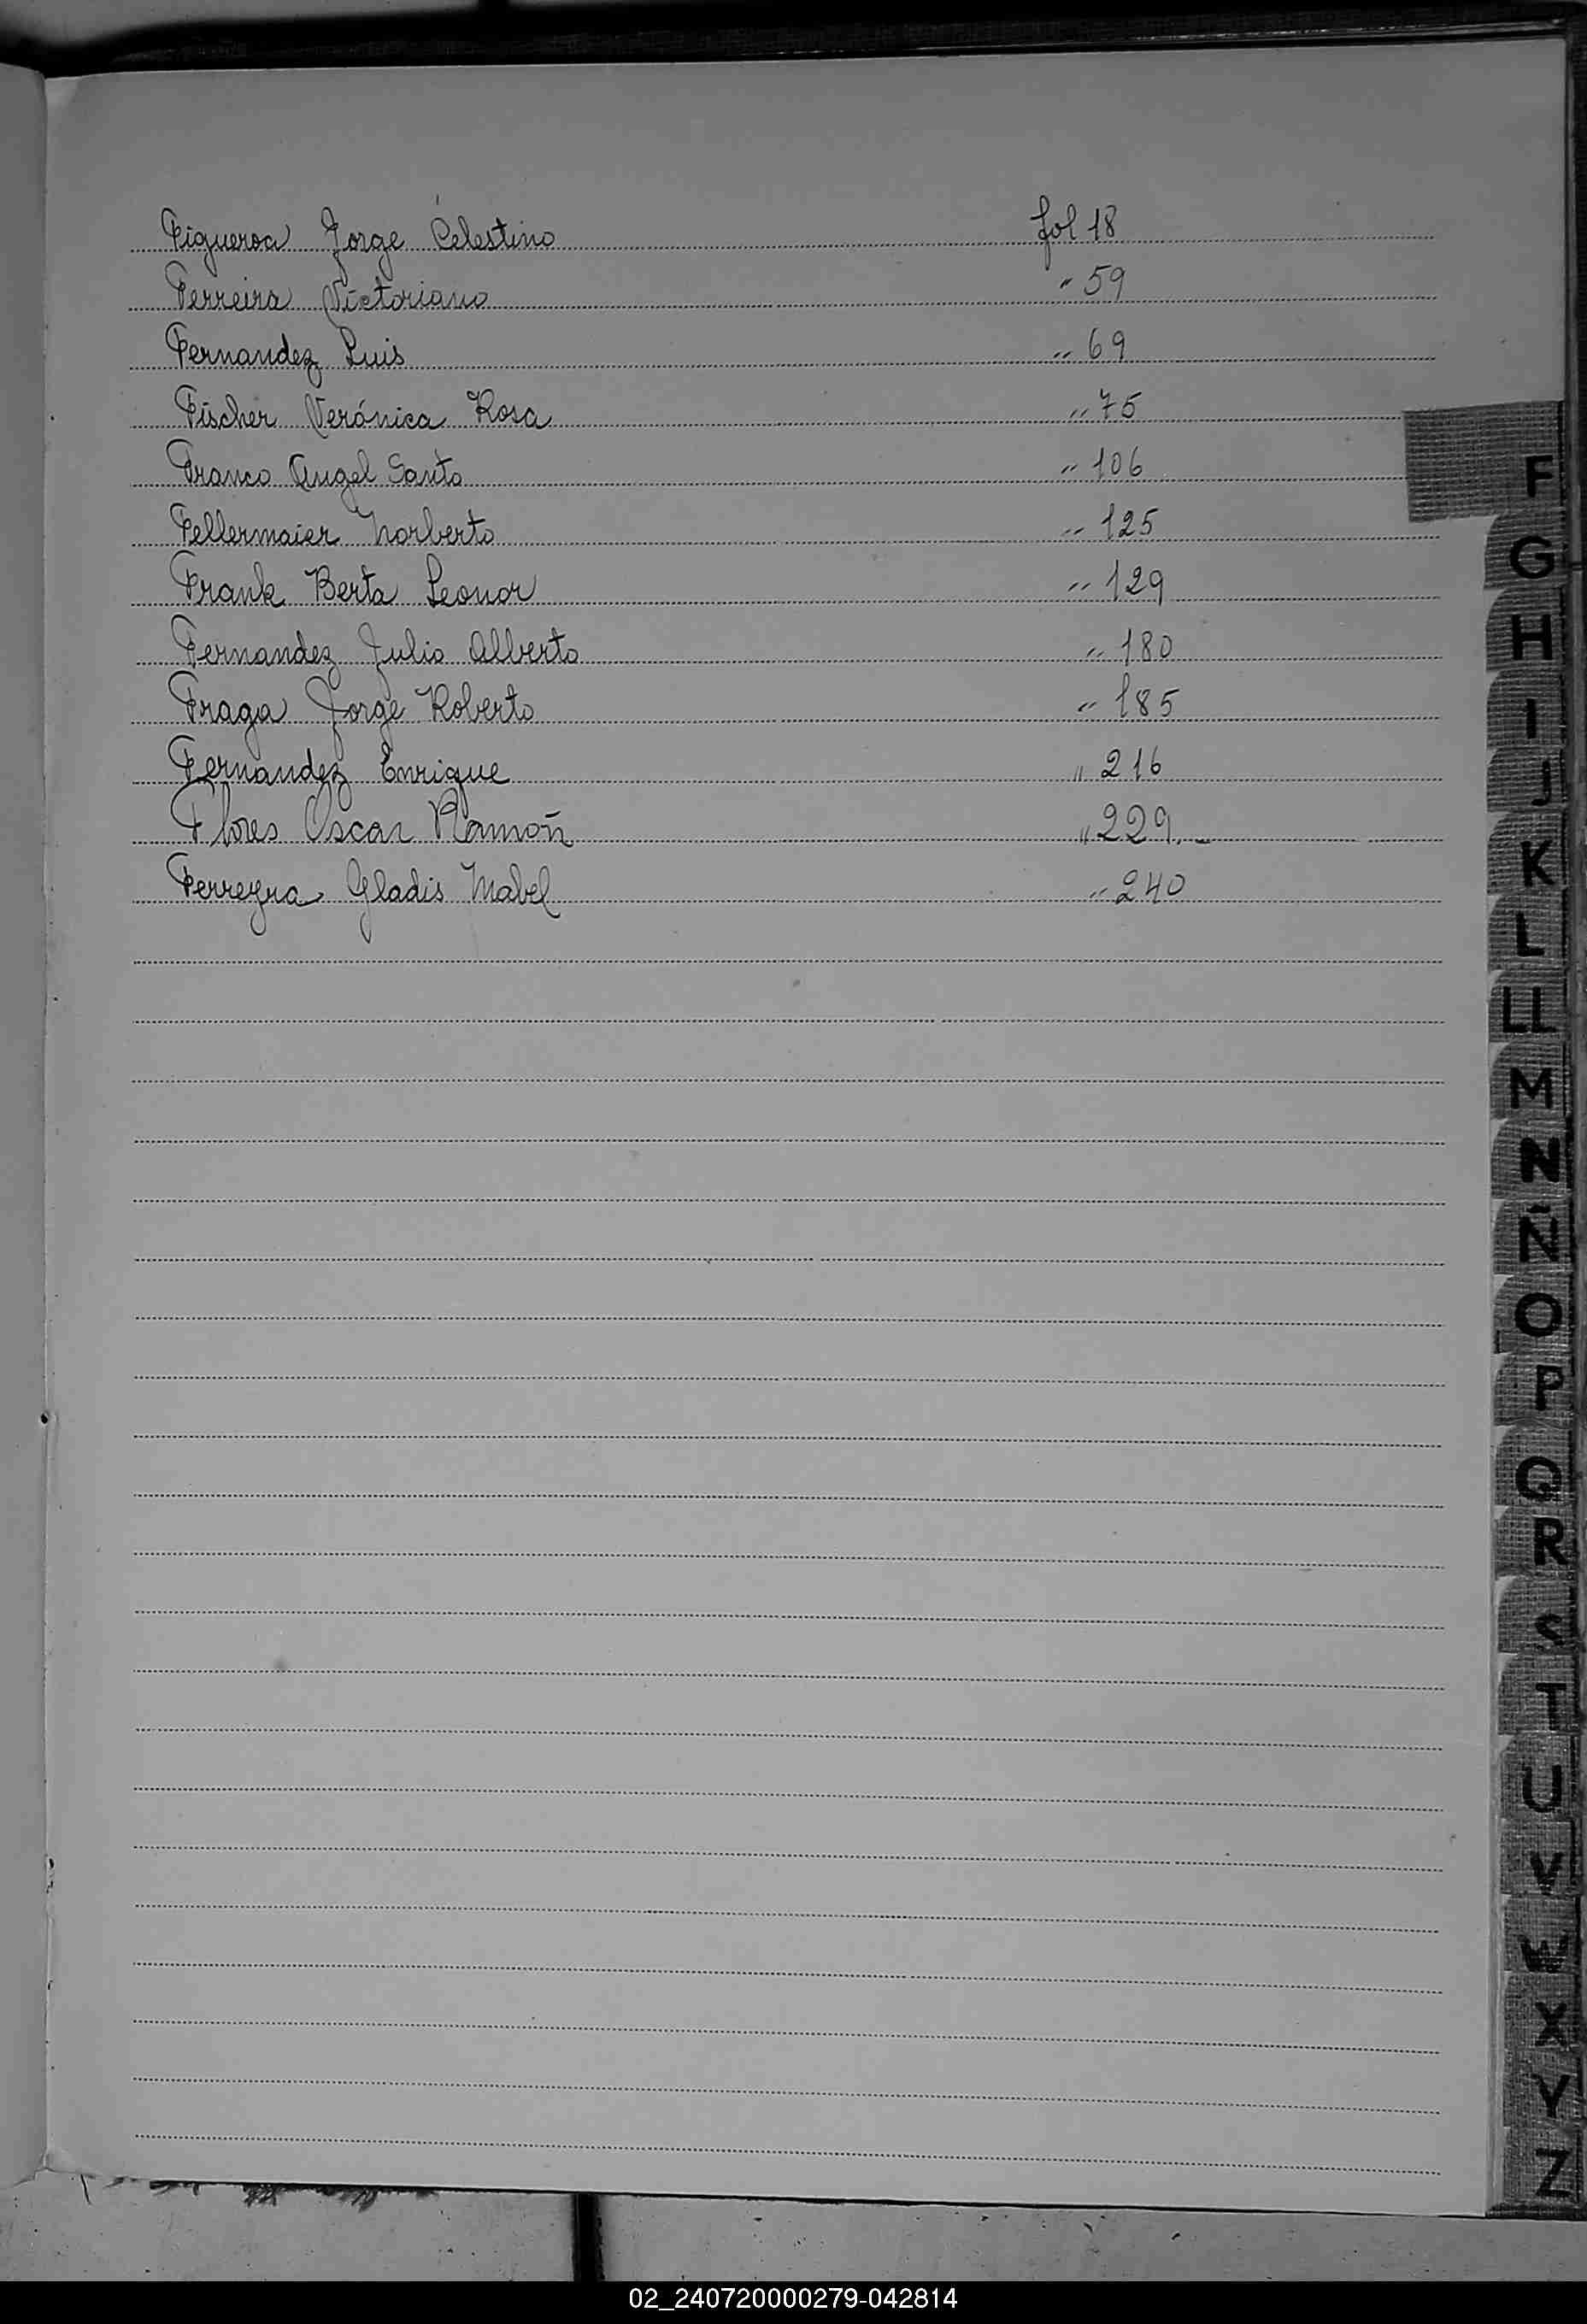 Figueroa Jorge Celestino fol 18
Ferreira Victoriano " 59
Fernandez Luis " 69
Fischer Verónica Rosa " 75
Franco Angel Santo " 106
Fellermaier Norberto " 125
Frank Berta Leonor " 129
Fernandez Julio Alberto " 180
Fraga Jorge Roberto " 185
Fernandez Enrique " 216
Flores Oscar Ramón " 229.-
Ferreyra Gladis Mabel " 240
F
G
H
I
J
K
L
LL
M
N
Ñ
O
P
Q
R
S
T
U
V
W
X
Y
Z
02_240720000279-042814